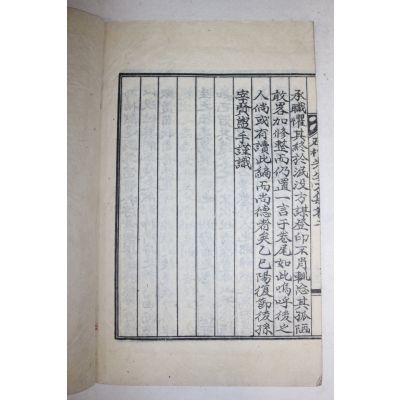 承職懼其終於泯没方謀登印不肖輒忘其孤陋
敢畧加修整而仍置一言于卷尾如此嗚呼後之
人倘或有讀此編而尚德者矣乙巳陽復節後孫
寧贊盥手謹識